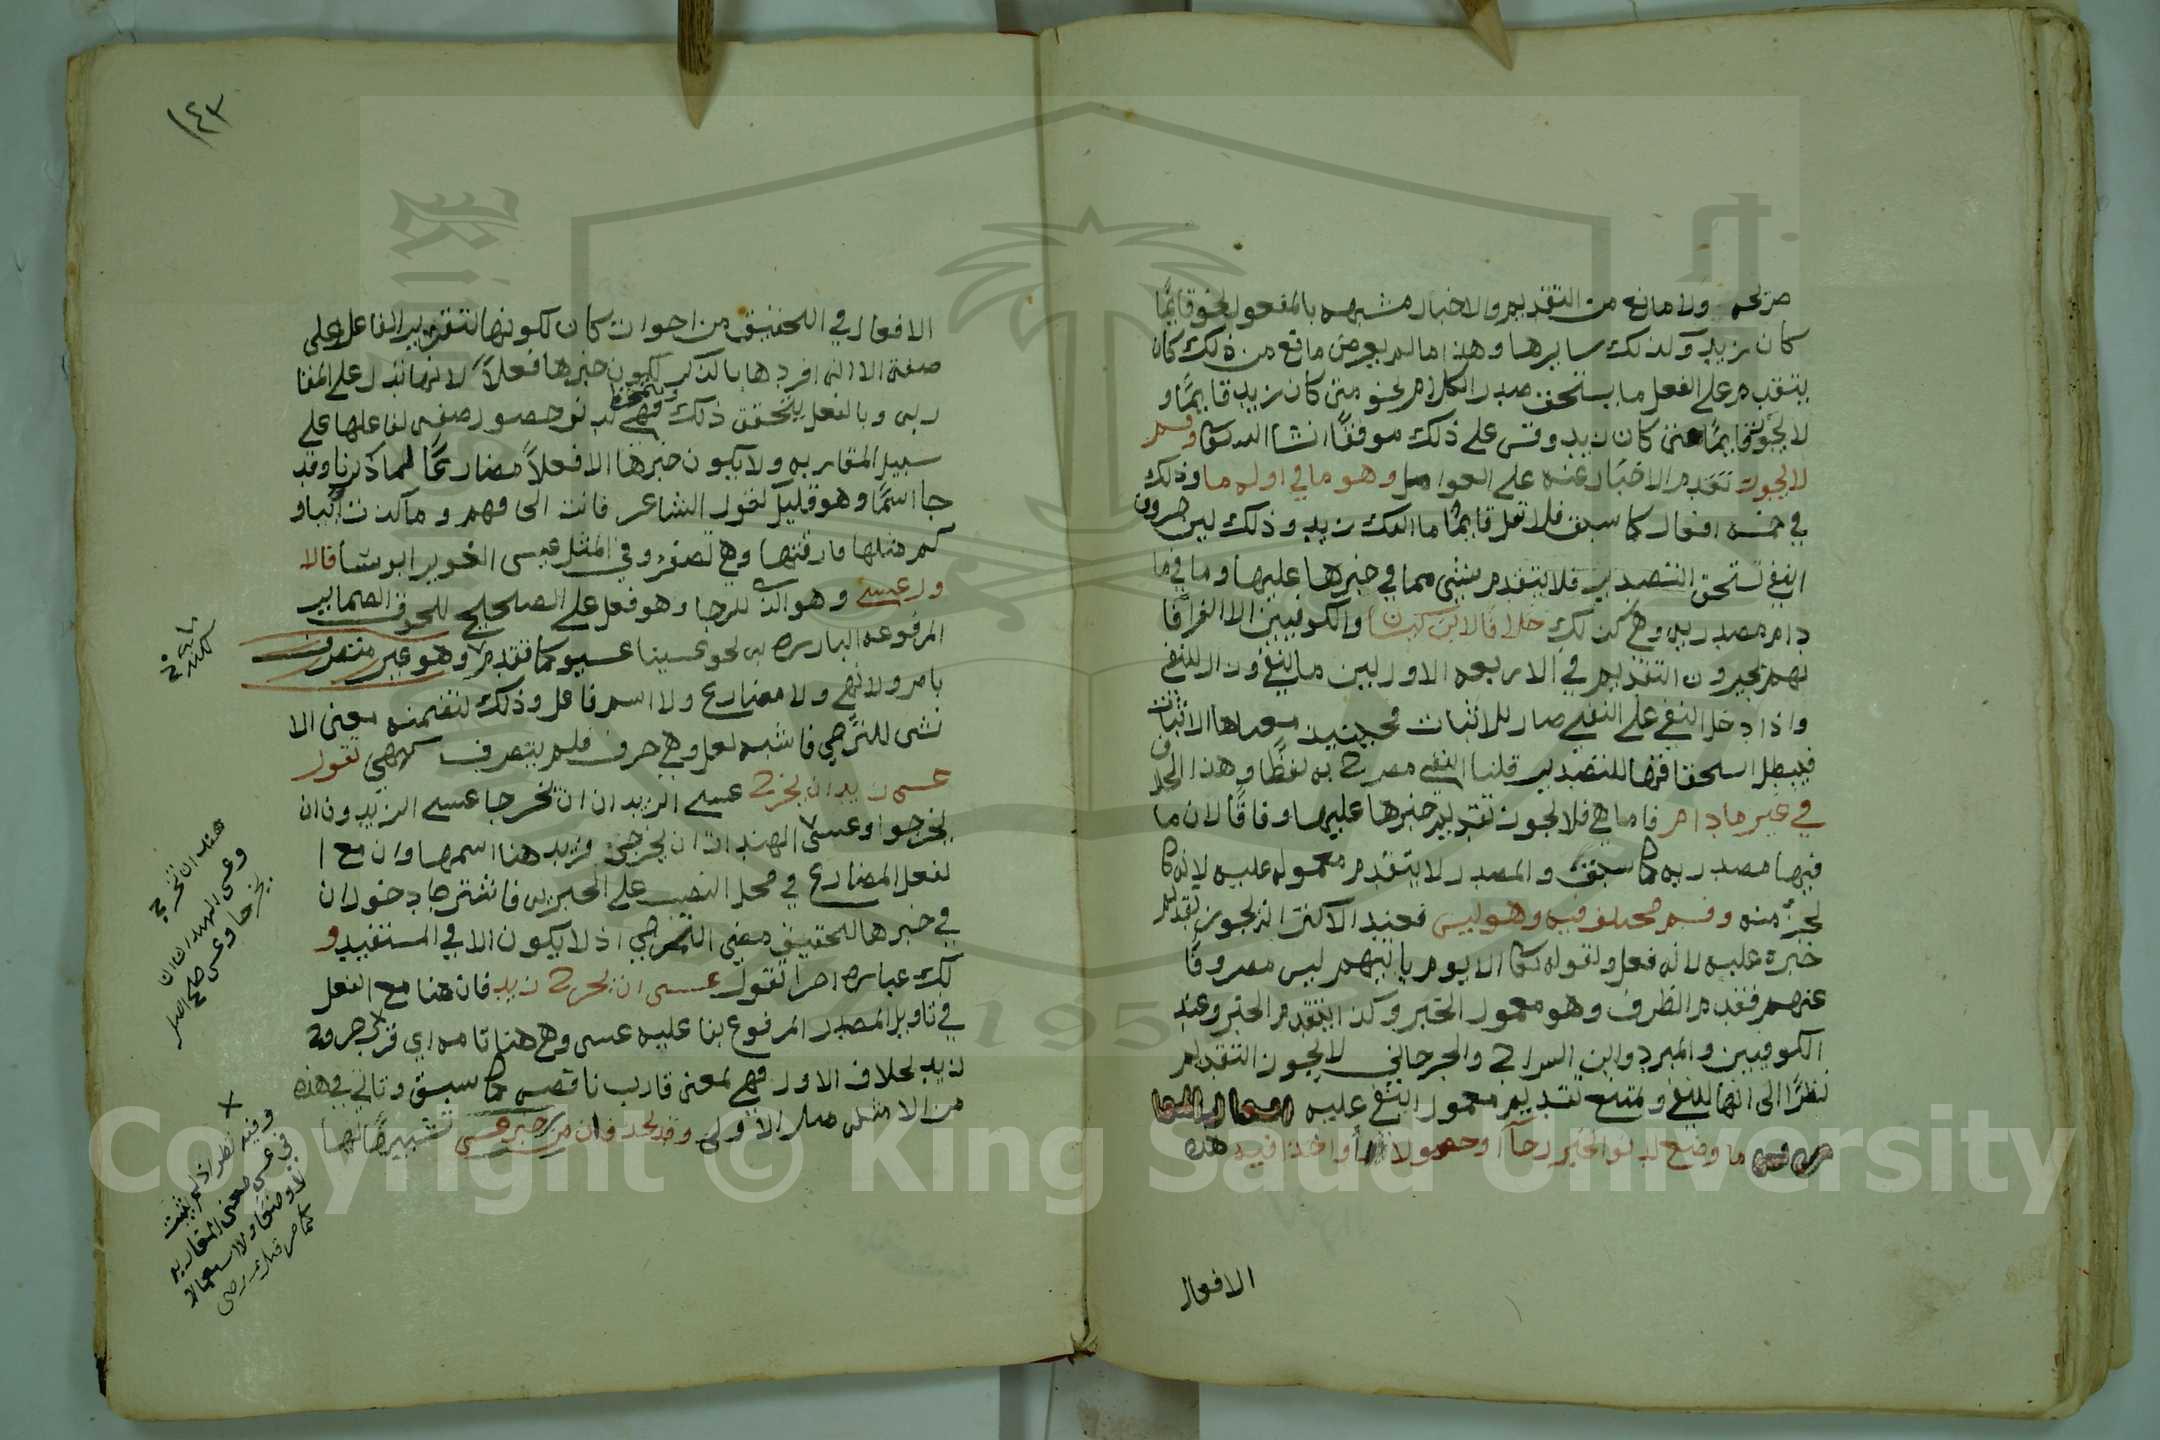 ولا مانع من التقديم والاخبار مشبهه بالمفعول نحو قايمًا
كان زيد وكذلك سايرها وهذا ما لم يعرض مانع من ذلك كان
يتقدم على الفعل ما يستحق صدر الكلام نحو متى كان زيد قايمًا و
لا يجوز قايمًا متى كان زيد وقس على ذلك موفقًا انشا الله تعالى وقسم
لا يجوز تقدم الاخبار عنه على العوامل وهو ما في اوله ما وذلك
في خمسه افعال كما سبق فلا تقل قايمًا ما انفك زيد وذلك لان حروف
النفي تستحق التصدير فلا يتقدم شي مما في خبرها عليها وما في ما
دام مصدريه وهي كذلك خلافًا لابن كيسان والكوفيين الا الفرا فا
نهم يجيزون التقديم في الاربعه الاول لان ما لنفي وزال للنفي
واذا دخل النفي على النفي صار للاثبات فحينئذ معناها الاثبات
فيبطل استحقاقها للتصدير قلنا النفي مصرح به لفظًا وهذا الخلاف
في غير ما دام فاما هي فلا يجوز تقديم خبرها عليها وفاقًا لان ما
فيها مصدريه كما سبق والمصدر لا يتقدم معموله عليه لانه كا
لجزء منه وقسم مختلف فيه وهو ليس فعند الاكثر انه يجوز تقديم
خبره عليه لانه فعل ولقوله تعالى الا يوم ياتيهم ليس مصروفًا
عنهم فقدم الظرف وهو معمول الخبر وكذا يتقدم الخبر وعند
الكوفيين والمبرد وابن السراج والجرجاني لا يجوز التقديم
نظرًا الى انها للنفي ويمتنع تقديم معمول النفي عليه افعال المقا
ما وضع لدنو الخبر رجآ او حصولا او اخذا فيه هذه
الافعال
١٤٣
الافعال في التحقيق من اخوات كان لكونها لتقرير الفاعل على
صفة الا انه افردها بالذكر لكون خبرها فعلاً لانها تدل على المقا
ربه وبالفعل يتحقق ذلك فهي لدنو حصول صفه لفاعلها على
سبيل المقاربه ولا يكون خبرها الا فعلاً مضارعًا لما ذكرنا وقد
جا اسمًا وهو قليل كقول الشاعر فابت الى فهم وما كدت آئبا و
كم مثلها فارقتها وهي تصفر وفي المثل عسى الغوير ابوسًا فالا
ول عسى وهو للرجا وهو فعل على الصحيح للحوق الضماير
المرفوعه البارزه به نحو عسينا عسيو كما تقدم وهو غير متصرف
بامر ولا نهي ولا مضارع ولا اسم فاعل وذلك لتضمنه معنى الا
نشى للترجي فاشبه لعل وهي حرف فلم يتصرف كهي تقول
عسى زيد ان يخرج عسى الزيدان ان يخرجا عسى الزيدون ان
يخرجوا وعسى الهندات ان يخرجن فزيد هنا اسمها وان مع ا
لفعل المضارع في محل النصب على الخبريه فاشترط دخول ان
في خبرها لتحقيق معنى الترجي اذ لا يكون الا في المستقبل و
لك عباره اخرا تقول عسى ان يخرج زيد فان هنا مع الفعل
في تاويل المصدر المرفوع بنا عليه عسى وهي هنا تامه اي قرب خروج
زيد بخلاف الاول فهي بمعنى قارب ناقصه كما سبق وتاتي في هذه
من الامثله مثل الاولى وقد تحذف ان من خبر عسى تشبيهًا لها
هند ان تخرج
وعسى الهندان ان
يخرجا وعسى
وفيه نظر اذ لم يثبت
في عسى معنى المقاربه
لا وضعًا ولا استعمالا
1957
Copyright © King Saud University